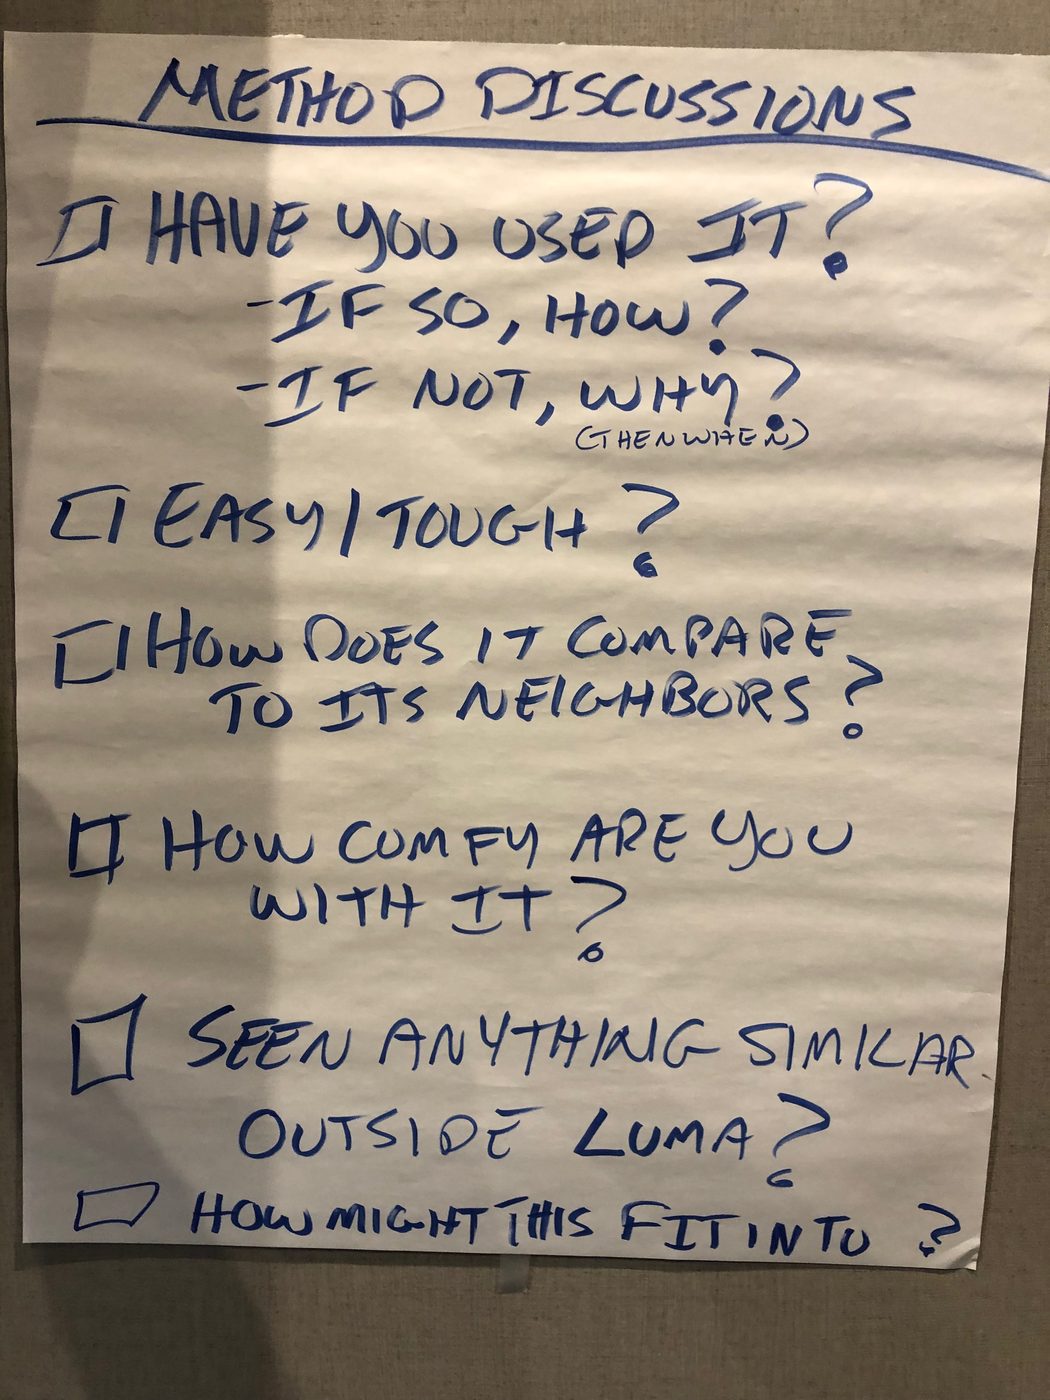 METHOD DISCUSSIONS
HAVE YOU USED IT?
-IF SO, HOW?
-IF NOT, WHY?
(THEN WHEN)
EASY/TOUGH?
HOW DOES IT COMPARE
TO ITS NEIGHBORS?
HOW COMFY ARE YOU
WITH IT?
SEEN ANYTHING SIMILAR
OUTSIDE LUMA?
HOW MIGHT THIS FIT INTO ?